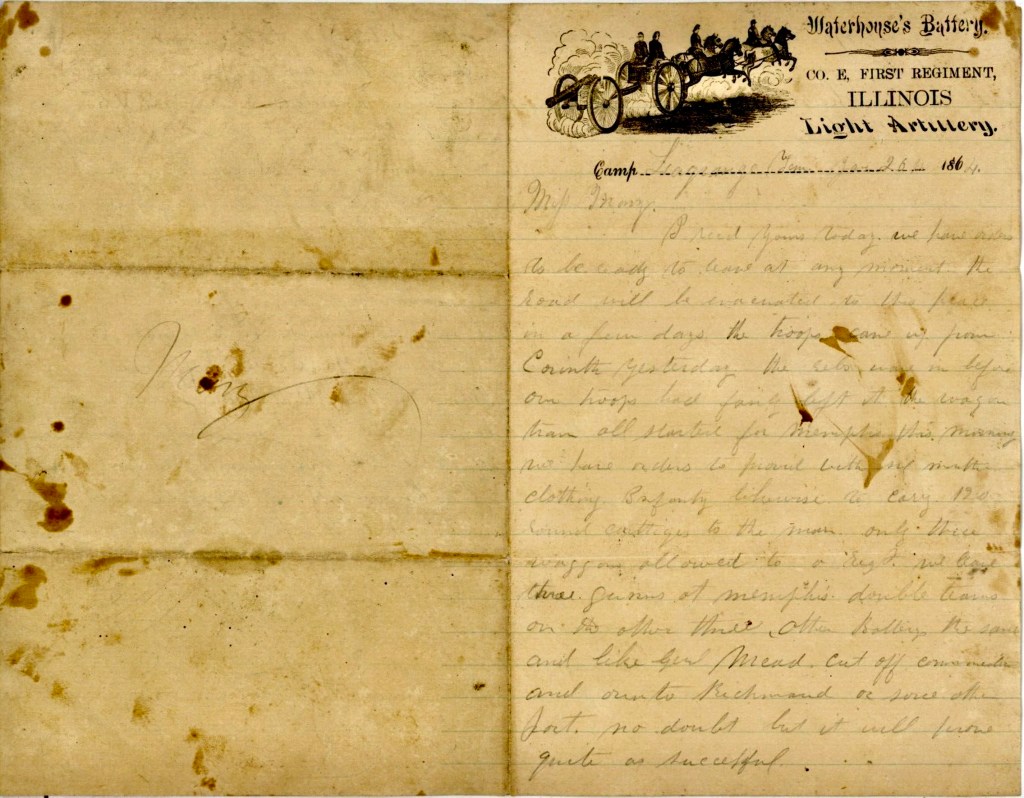 Mary
Waterhouse's Battery.
CO. E, FIRST REGIMENT,
ILLINOIS
Light Artillery.
Camp Lagrange Tenn Jan 26th 1864.
Miss Mary.
I recd yours today, we have orders
to be ready to leave at any moment the
Road will be evacuated to this place
in a few days the troops came up from
Corinth yesterday the rebs were in before
our troops had fairly left it the wagon
train all started for Memphis this morning
we have orders to with
clothing Infanty likewise to cary 120
round cattriges to the man only three
waggons allowed to a Regt. we leave
three gunns at memphis double teams
on the other three, other Battery the same
and like Genl Mead cut off
and on to Richmond or some other
fort. no doubt but it will prove
quite as successful.